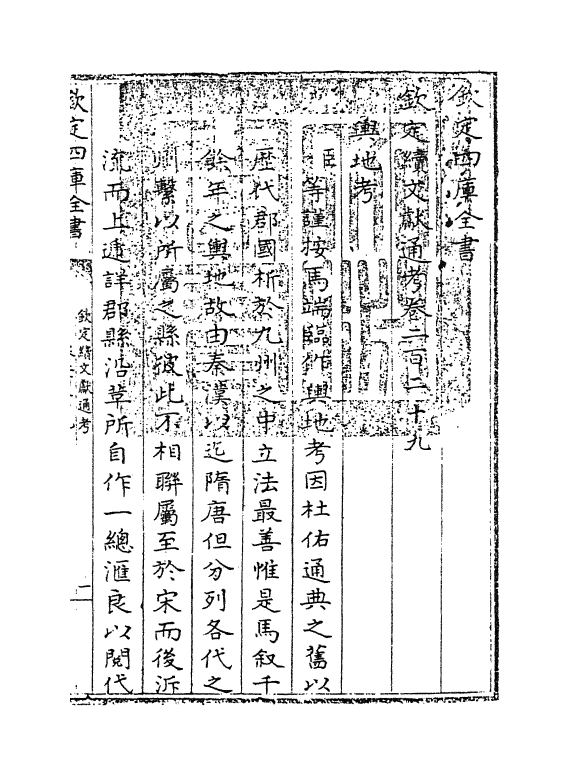 欽定四庫全書
欽定續文獻通考卷二百二十九
輿地考
臣等謹按馬端臨作輿地考因杜佑通典之舊以
歴代郡國析於九州之中立法最善惟是馬叙千
餘年之輿地故由秦漢以迄隋唐但分列各代之
則繫以所屬之縣彼此不相聯屬至於宋而後泝
流而上逓詳郡縣沿革所自作一總滙良以閱代
欽定四庫全書
欽定續文獻通考
一